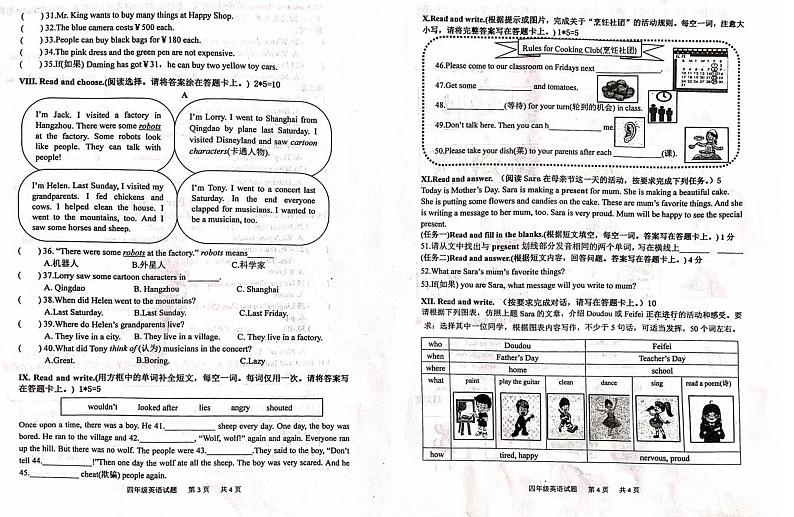 ( )31.Mr. King wants to buy many things at Happy Shop.
( )32.The blue camera costs ¥ 500 each.
( )33.People can buy black bags for ¥ 180 each.
( )34.The pink dress and the green pen are not expensive.
( )35.If(如果) Daming has got ¥ 31, he can buy two yellow toy cars.
VIII. Read and choose.(阅读选择。请将答案涂在答题卡上。) 2*5=10
A
I'm Jack. I visited a factory in
Hangzhou. There were some robots
at the factory. Some robots look
like people. They can talk with
people!
I'm Lorry. I went to Shanghai from
Qingdao by plane last Saturday. I
visited Disneyland and saw cartoon
characters(卡通人物).
I'm Helen. Last Sunday, I visited my
grandparents. I fed chickens and
cows. I helped clean the house. I
went to the mountains, too. And I
saw some horses and sheep.
I'm Tony. I went to a concert last
Saturday. In the end everyone
clapped for musicians. I wanted to
be a musician, too.
( ) 36. "There were some robots at the factory." robots means
A.机器人 B.外星人 C.科学家
( ) 37.Lorry saw some cartoon characters in .
A. Qingdao B. Hangzhou C. Shanghai
( ) 38.When did Helen went to the mountains?
A.Last Saturday. B.Last Sunday. C.Last Friday.
( ) 39.Where do Helen's grandparents live?
A. They live in a city. B. They live in a village. C. They live in a factory.
( ) 40.What did Tony think of (认为) musicians in the concert?
A.Great. B.Boring. C.Lazy
IX. Read and write.(用方框中的单词补全短文，每空一词。每词仅用一次。请将答案写
在答题卡上。) 1*5=5
wouldn't looked after lies angry shouted
Once upon a time, there was a boy. He 41. sheep every day. One day, the boy was
bored. He ran to the village and 42. , "Wolf, wolf!" again and again. Everyone ran
up the hill. But there was no wolf. The people were 43. .They said to the boy, "Don't
tell 44. !"Then one day the wolf ate all the sheep. The boy was very scared. And he
45. cheat(欺骗) people again.
四年级英语试题 第 3 页 共 4 页
X.Read and write.(根据提示或图片，完成关于“烹饪社团”的活动规则。每空一词，注意大
小写，请将完整答案写在答题卡上。) 1*5=5
Rules for Cooking Club(烹饪社团)
46.Please come to our classroom on Fridays next .
47.Get some and tomatoes.
48. (等待) for your turn(轮到的机会) in class.
49.Don't talk here. Then you can h me.
50.Please take your dish(菜) to your parents after each (课).
XI.Read and answer. (阅读 Sara 在母亲节这一天的活动，按要求完成下列任务。) 5
Today is Mother's Day. Sara is making a present for mum. She is making a beautiful cake.
She is putting some flowers and candies on the cake. These are mum's favorite things. And she
is writing a message to her mum, too. Sara is very proud. Mum will be happy to see the special
present.
(任务一)Read and fill in the blanks.(根据短文填空，每空一词。答案写在答题卡上。) 1 分
51.请从文中找出与 present 划线部分发音相同的两个单词，写在横线上
(任务二)Read and answer.(根据短文内容，回答问题。答案写在答题卡上。) 4 分
52.What are Sara's mum's favorite things?
53.If(如果) you are Sara, what message will you write to mum?
XII. Read and write. (按要求完成对话，请写在答题卡上。) 10
请根据下列图表，仿照上题 Sara 的文章，介绍 Doudou 或 Feifei 正在进行的活动和感受。要
求：选择其中一位同学，根据图表内容写作，不少于 5 句话，可适当发挥，50 个词左右。
who Doudou Feifei
when Father's Day Teacher's Day
where home school
what paint play the guitar clean dance sing read a poem(诗)
how tired, happy nervous, proud
四年级英语试题 第 4 页 共 4 页